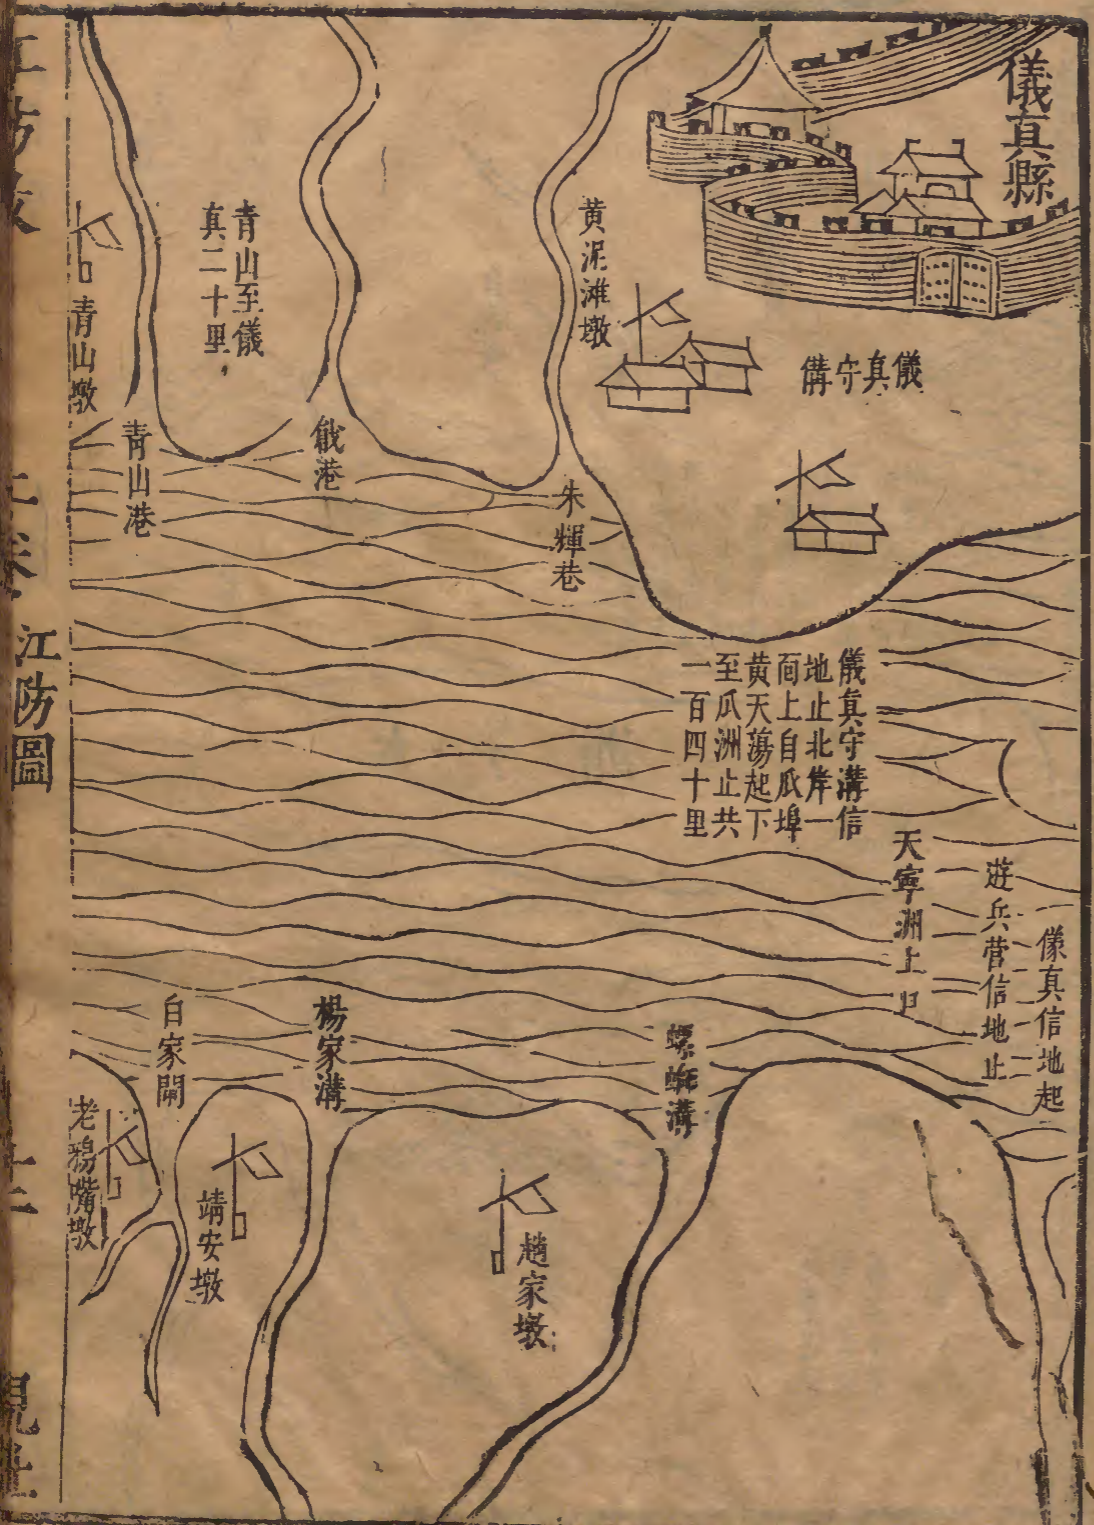 儀真縣
黃泥灘墩
儀真守備
青山至儀
真二十里
青山墩
青山港
戧港
朱輝巷
儀真守溝信
地止北岸一
靣上自瓜埠
黄天蕩起下
至瓜洲止共
一百四十里
天寧洲上口
遊兵营信地止
儀真信地起
螺螄溝
楊家溝
白家閘
趙家墩
靖安墩
老鴉嘴墩
江防
江防圖